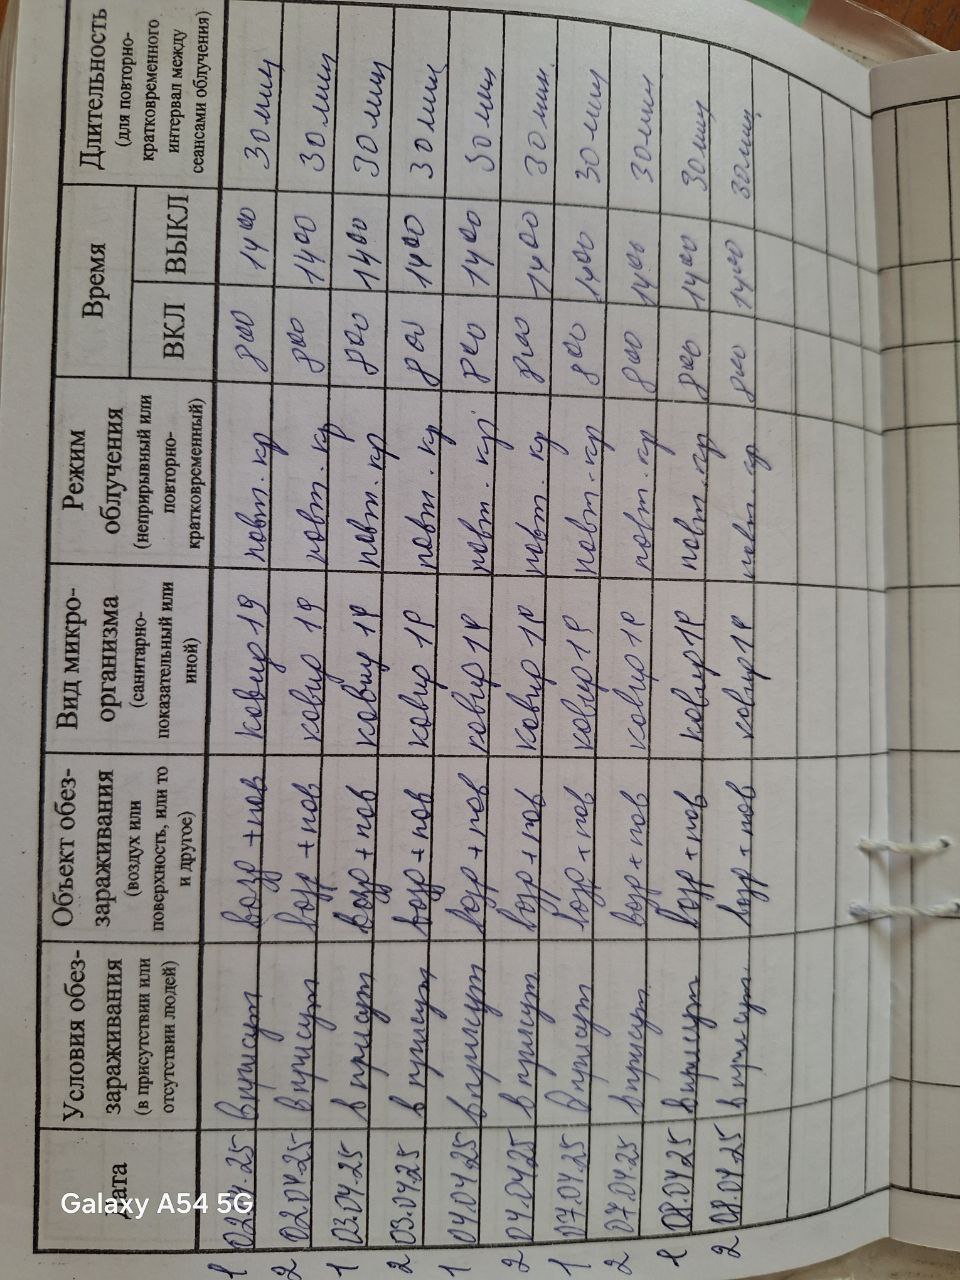 Дата
Условия обез-
зараживания
(в присутствии или
отсутствии людей)
Объект обез-
зараживания
(воздух или
поверхность, или то
и другое)
Вид микро-
организма
(санитарно-
показательный или
иной)
Режим
облучения
(неприрывный или
повторно-
кратковременный)
Время
ВКЛ
ВЫКЛ
Длительность
(для повторно-
кратковременного
интервал между
сеансами облучения)
1 02.04.25 в присут возд+пов ковид 19 повт.кр 800 1400 30 мин
2 02.04.25 в присут возд+пов ковид 19 повт.кр 800 1400 30 мин
1 03.04.25 в присут возд+пов ковид 19 повт.кр 800 1400 30 мин
2 03.04.25 в присут возд+пов ковид 19 повт.кр 800 1400 30 мин
1 04.04.25 в присут возд+пов ковид 19 повт.кр 800 1400 30 мин
2 04.04.25 в присут возд+пов ковид 19 повт.кр 800 1400 30 мин
1 07.04.25 в присут возд+пов ковид 19 повт.кр 800 1400 30 мин
2 07.04.25 в присут возд+пов ковид 19 повт.кр 800 1400 30 мин
1 08.04.25 в присут возд+пов ковид 19 повт.кр 800 1400 30 мин
2 08.04.25 в присут возд+пов ковид 19 повт.кр 800 1400 30 мин
Galaxy A54 5G